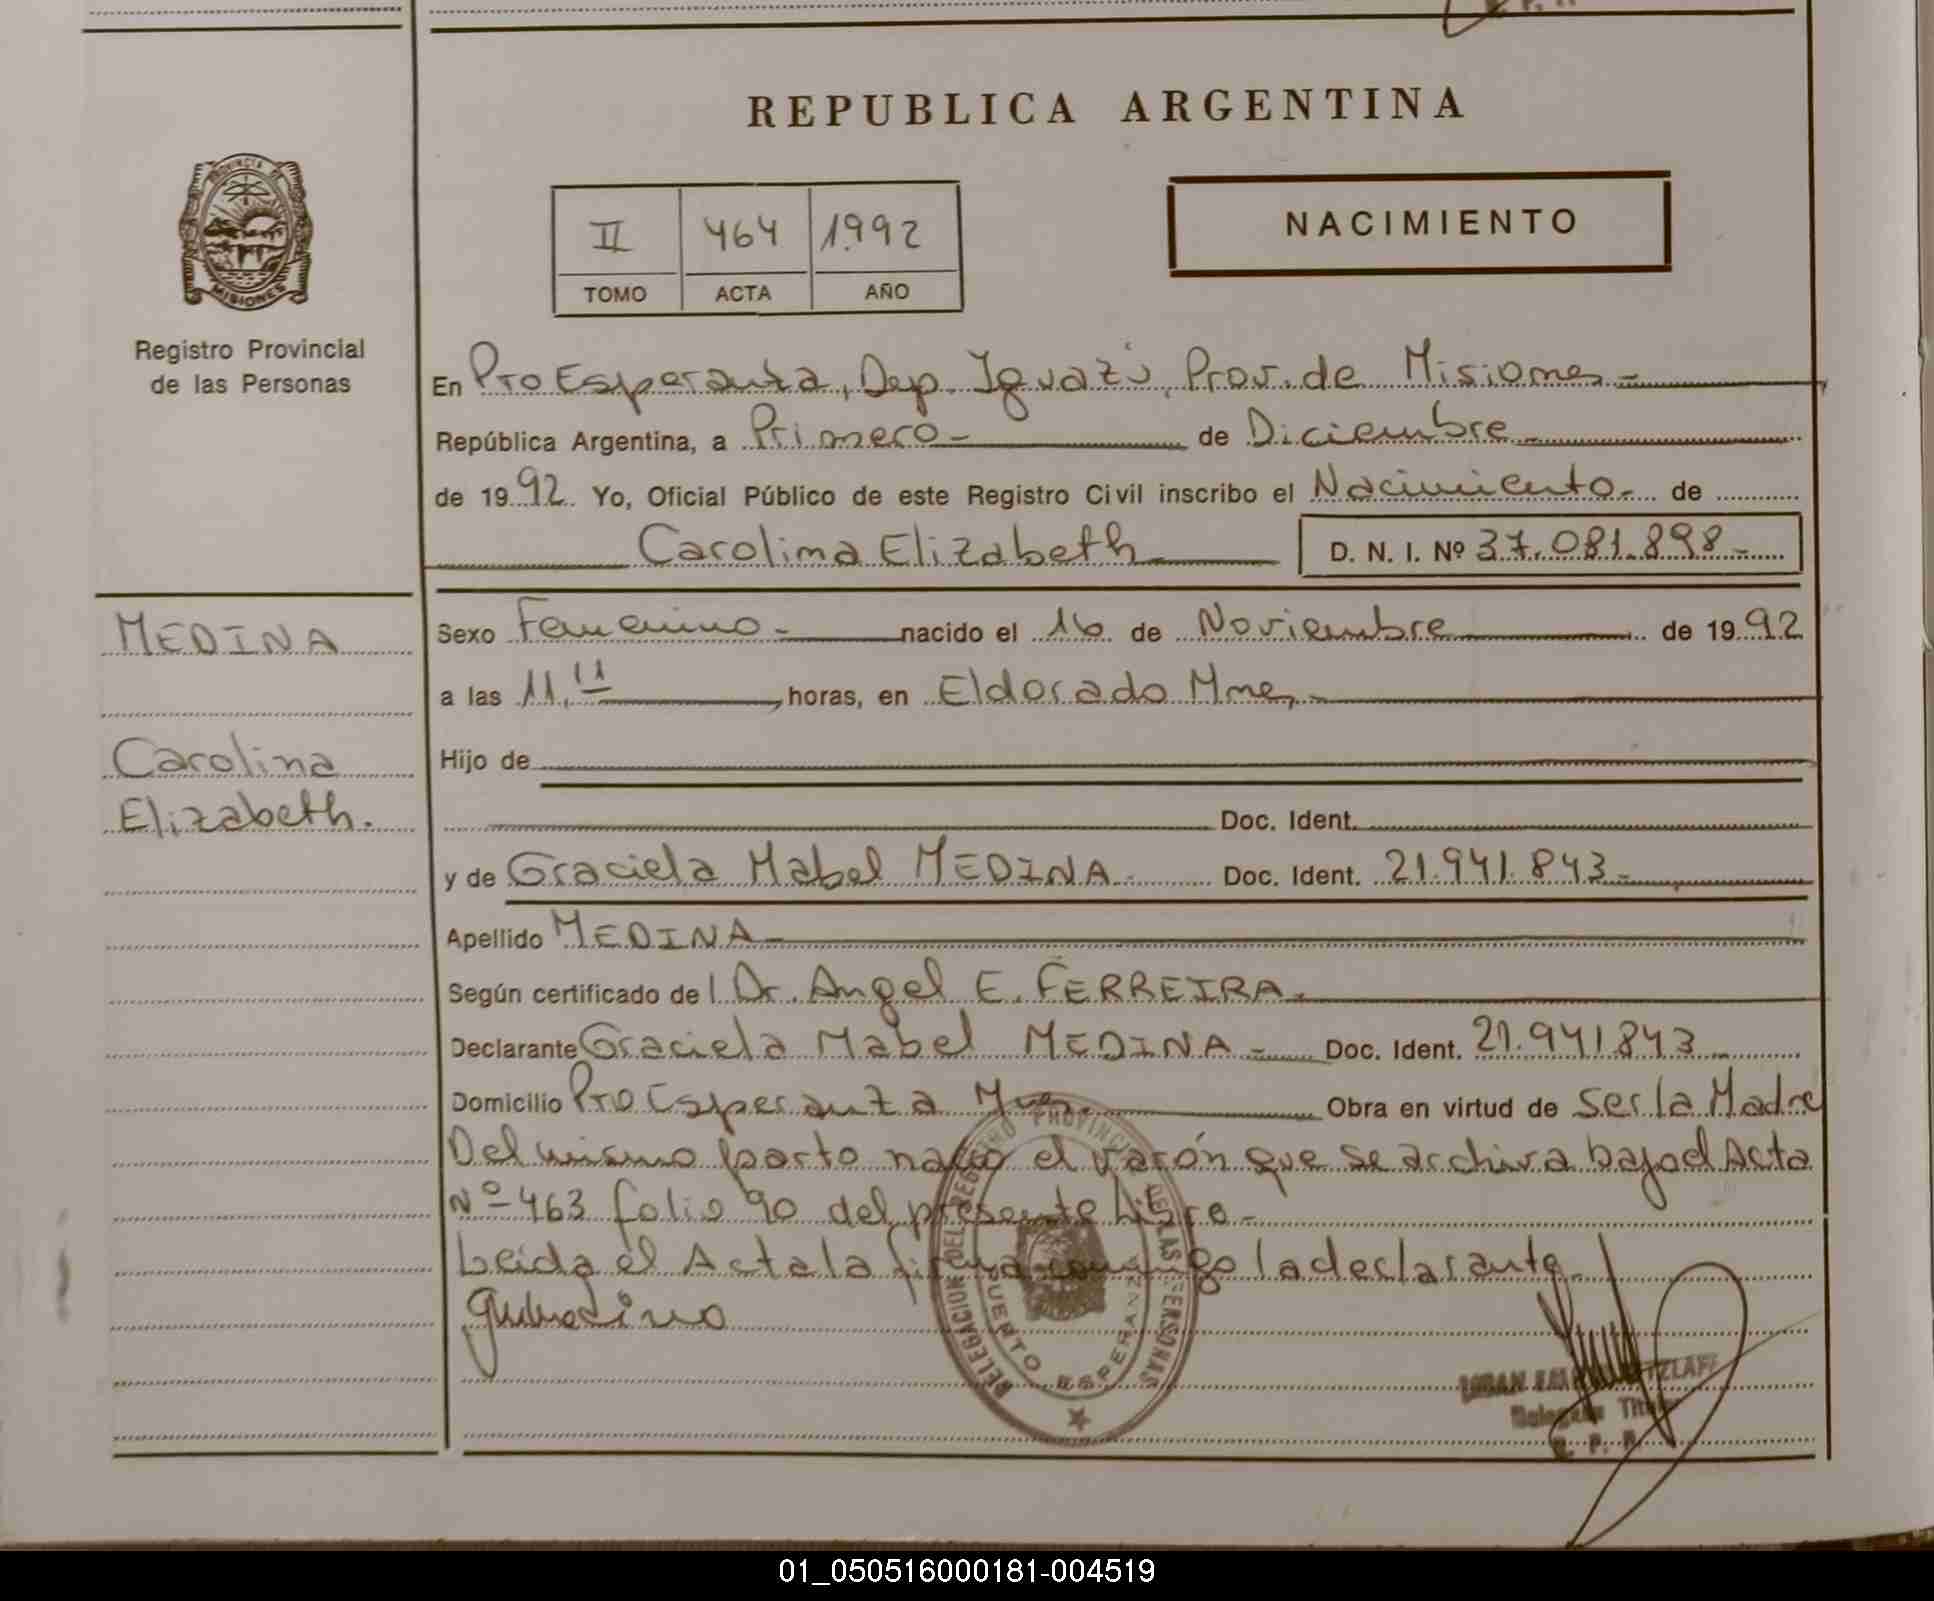 REPUBLICA ARGENTINA
PROVINCIA DE
MISIONES
Registro Provincial
de las Personas
II 464 1992
TOMO ACTA AÑO
NACIMIENTO
En Pto Esperanza, Dep. Iguazú, Prov. de Misiones.-
República Argentina, a Primero- de Diciembre
de 1992 Yo, Oficial Público de este Registro Civil inscribo el Nacimiento.- de
Carolina Elizabeth D. N. I. Nº 37.081.898-
MEDINA
Carolina
Elizabeth.
Sexo Femenino- nacido el 16 de Noviembre de 1992
a las 11,11 horas, en Eldorado Mnes,-
Hijo de
Doc. Ident.
y de Graciela Mabel MEDINA. Doc. Ident. 21.941.843-
Apellido MEDINA-
Según certificado del Dr. Angel E. FERREIRA.
Declarante Graciela Mabel MEDINA- Doc. Ident. 21.941843
Domicilio Pto Esperanza Mnes. Obra en virtud de ser la Madre
Del mismo parto nació el varón que se archiva bajo el Acta
Nº 463 folio 90 del presente Libro-
Leida el Acta la firma conmigo la declarante
DELEGACION DEL REGISTRO PROVINCIAL DE LAS PERSONAS
PUERTO ESPERANZA
Delegado Titular
R. P. P.
01_050516000181-004519